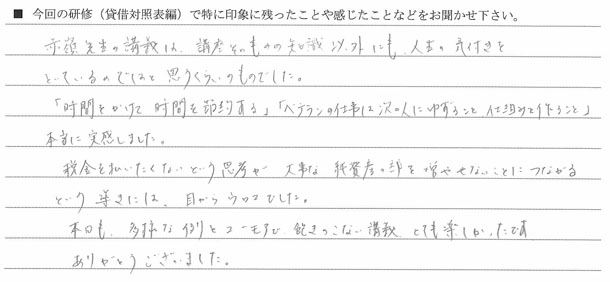 ■ 今回の研修(貸借対照表編)で特に印象に残ったことや感じたことなどをお聞かせ下さい。
先生の講義は、講座そのものの知識以外にも、人生の気付きを
っているのではと思うくらいのものでした。
「時間をかけて時間を節約する」「ベテランの仕事は次の人にゆずること 仕組みを作ること」
本当に実感しました。
税金を払いたくないという思考が 大事な純資産の部を増やせないことにつながる
という導きには、目からウロコでした。
本日も、多様な例とユーモアで、飽きのこない講義、とても楽しかったです
ありがとうございました。